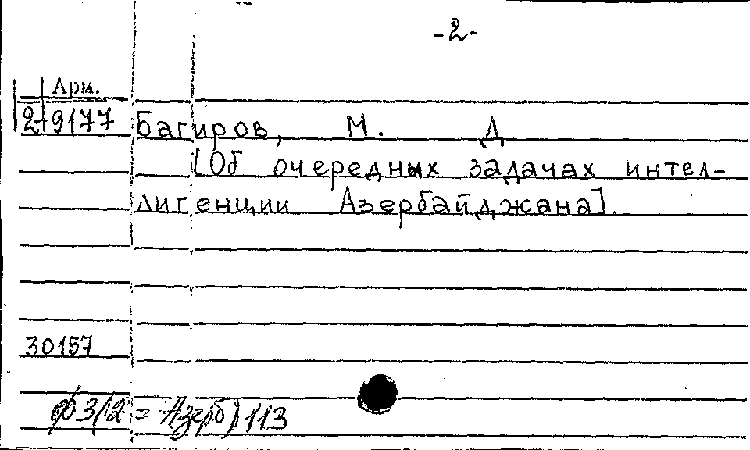 -2-
Арм.
2-9177 Багиров, М. Д
[Об очередных задачах интел-
лигенции Азербайджана].
30157
ф3(2=Азерб)113